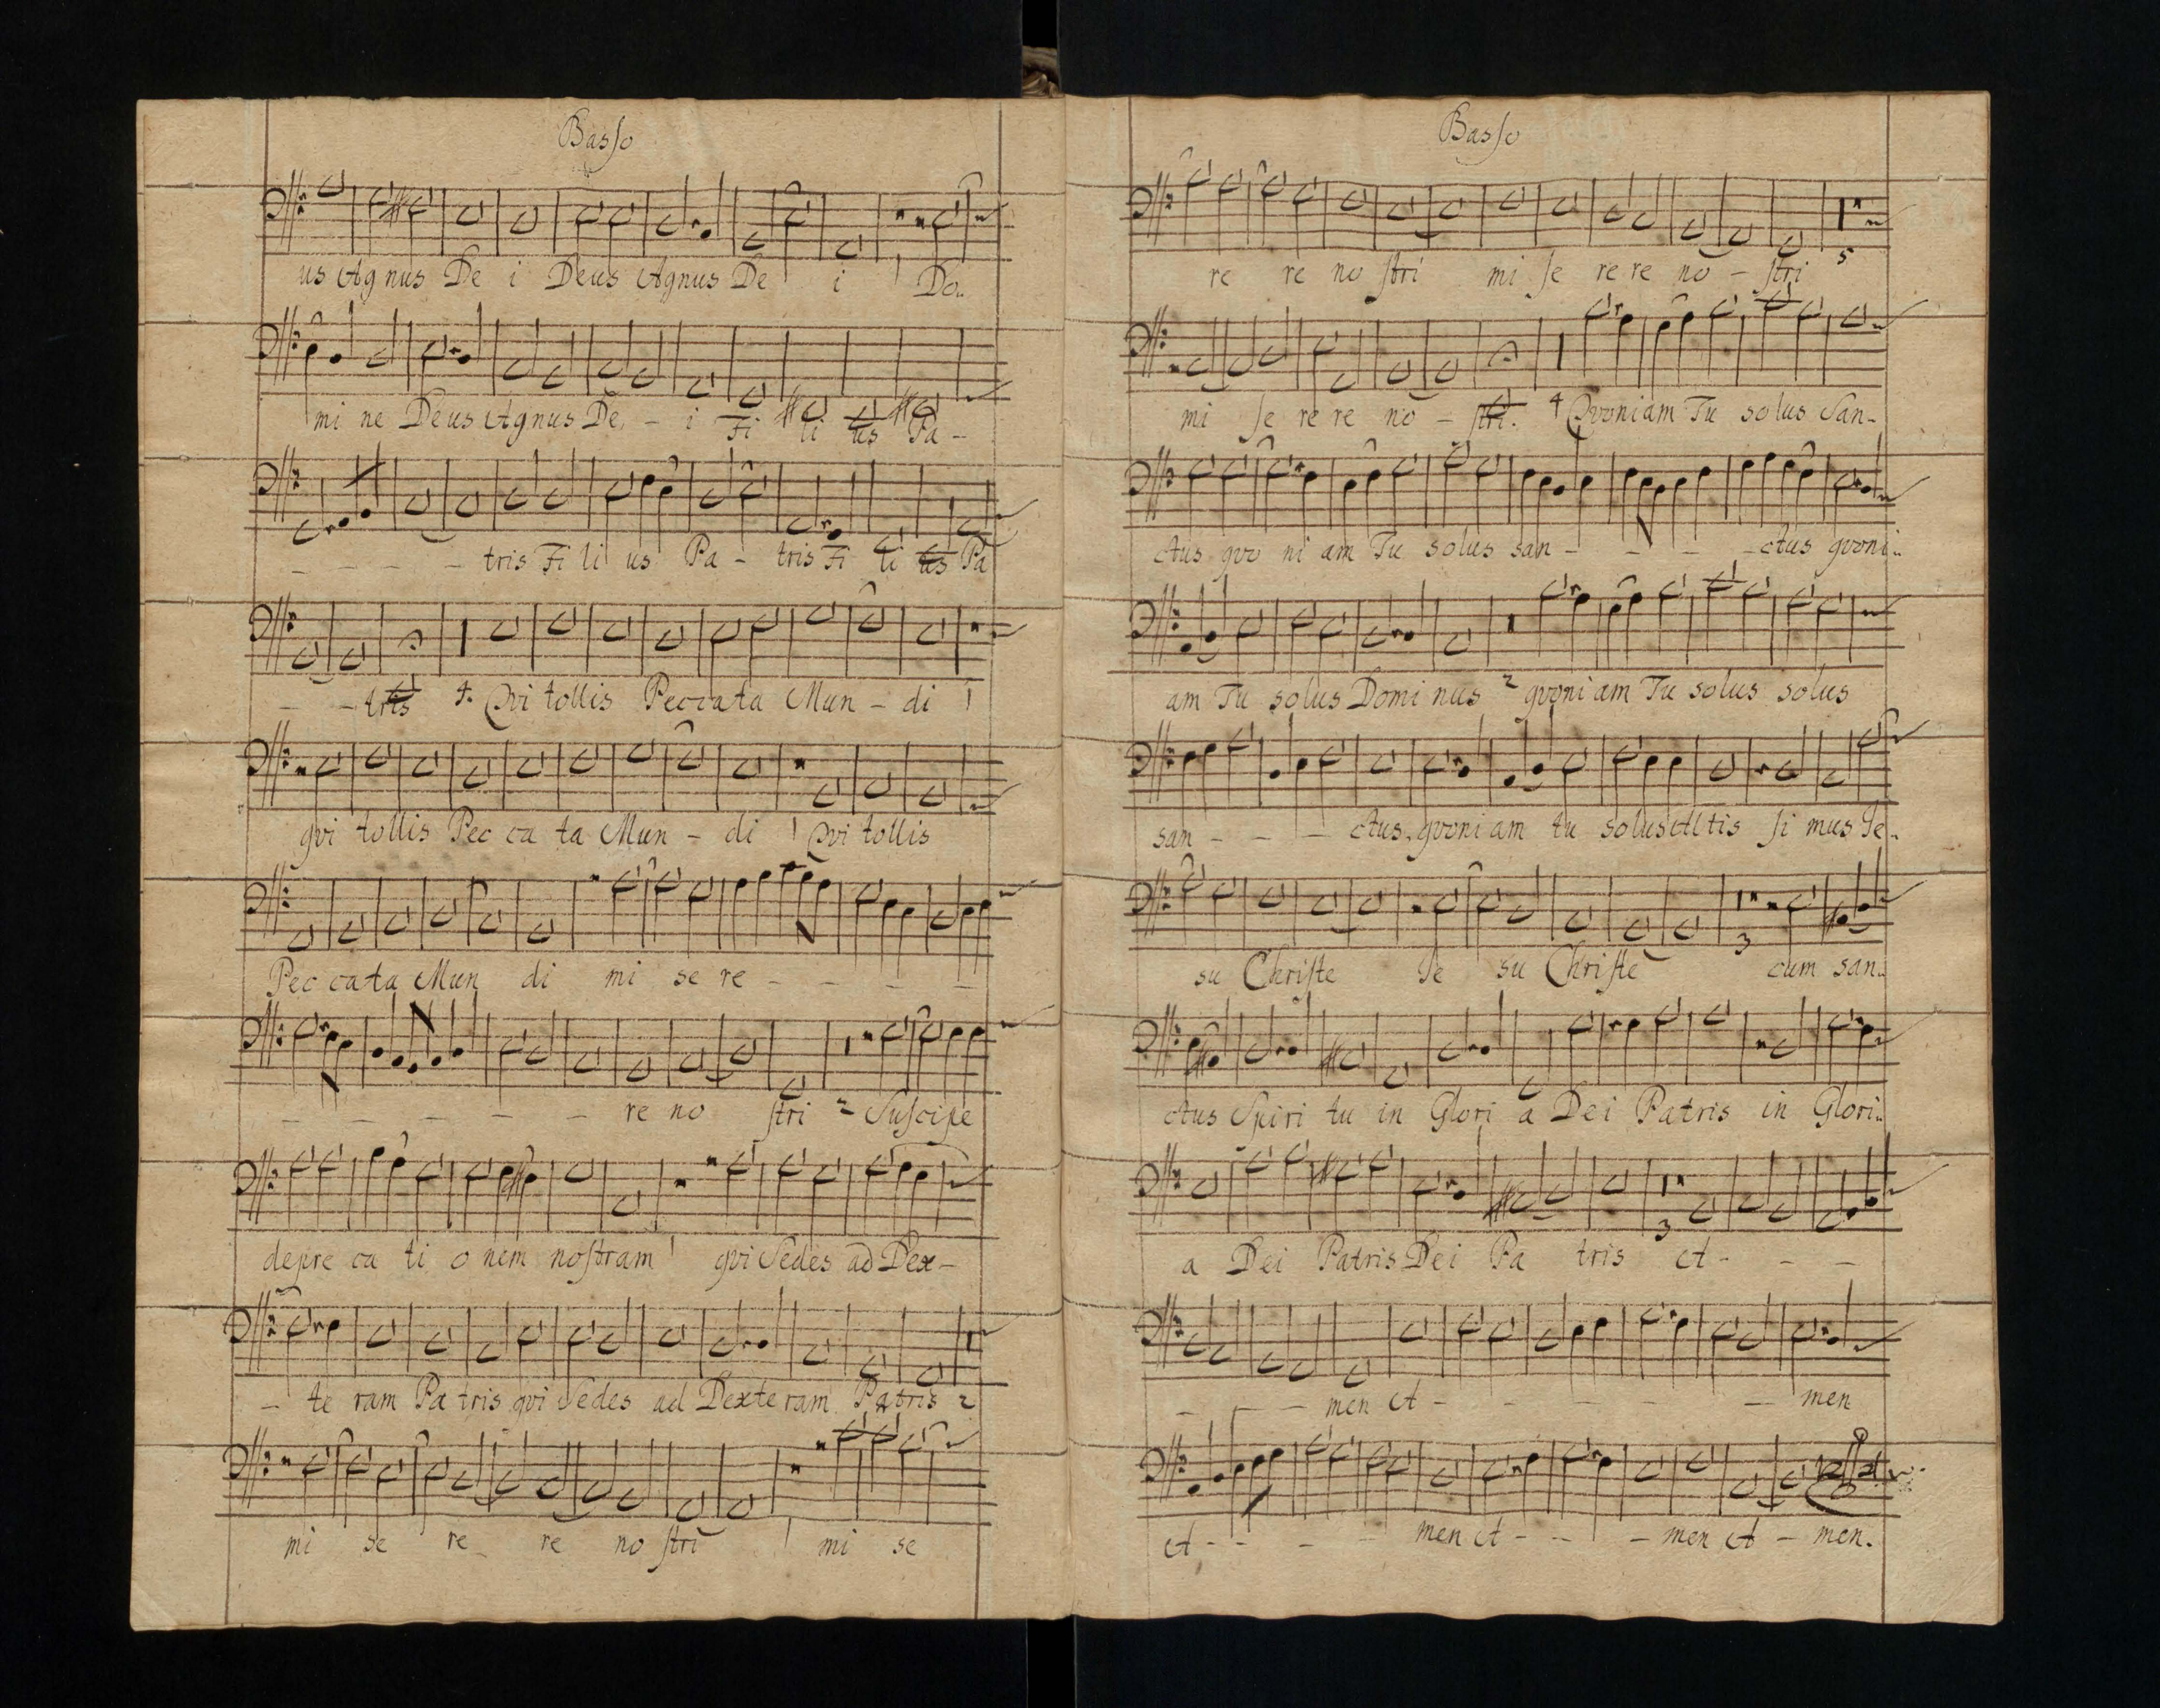 Basso
us Agnus De i Deus Agnus De i 1 Do..
mi ne Deus Agnus De - i Fi li us Pa -
- - - - tris Fi li us Pa - tris Fi li us Pa
- - tris 4. Qvi tollis Peccata Mun - di 1
qvi tollis Pec ca ta Mun - di 1 Qvi tollis
Pec cata Mun di mi se re - - - -
- - - - - re no ſtri 2 Suſcipe
depre ca ti o nem noſtram 1 qvi Sedes ad Dex -
- te ram Pa tris qvi Sedes ad Dexte ram Patris 2
mi se re re no ſtri 1 mi se
Basso
re re no ſtri mi ſe re re no - ſtri 5
mi ſe re re no - ſtri. 4 Qvoniam Tu solus San -
ctus qvo ni am Tu solus san - - - - ctus qvoni..
am Tu solus Domi nus 2 qvoniam Tu solus solus
san - - - ctus. qvoni am tu solus Altis ſi mus Je..
su Chriſte Je su Chriſte 3 cum san..
ctus Spiri tu in Glori a Dei Patris in Glori..
a Dei Patris Dei Pa tris 3 A - - -
- - - men A - - - - - men
A - - - - men A - - - men A - men.